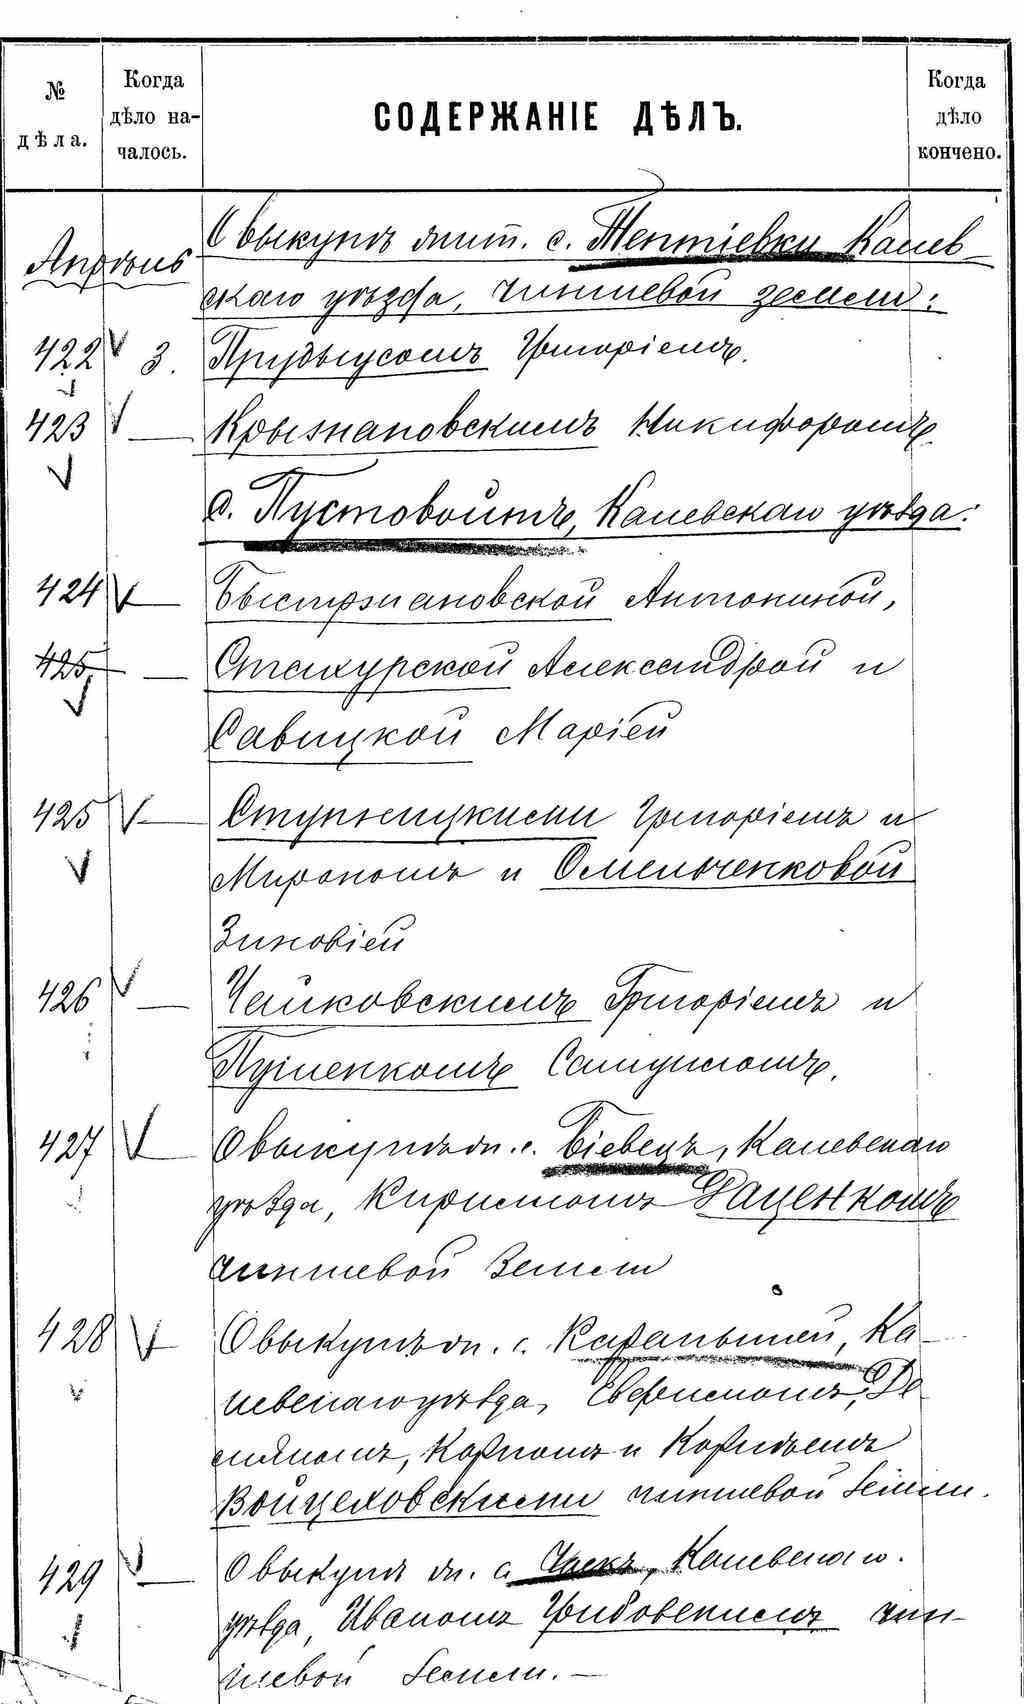 № дѣла.
Когда дѣло на-
чалось.
СОДЕРЖАНІЕ ДѢЛЪ.
Когда дѣло кончено.
Апрѣль
О выкупѣ жит. с. Тептіевки Канев
скаго уѣзда, чиншевой земли:
422 3. Прудыусомъ Григоріемъ.
423 — Крыжановскимъ Никифоромъ
с. Пустовойтъ, Каневскаго уѣзда:
424 — Быстржановской Антониной,
425 — Стахурской Александрой и
Савицкой Маріей
425 — Ступницкими Григоріемъ и
Мирономъ и Омельченковой
Зиновіей
426 — Чайковскимъ Григоріемъ и
Пуленкомъ Самуиломъ.
427 — О выкупѣ жит. с. Біевецъ, Каневскаго
уѣзда, Кирилломъ Даценкомъ
чиншевой земли
428 — О выкупѣ жит. с. Карапышей, Ка
невскаго уѣзда, Де
мьяномъ, Карпомъ и Корнѣемъ
Войцеховскими чиншевой земли.
429 — О выкупѣ жит. с. Каневскаго
уѣзда, Иваномъ Грибовскимъ чин-
шевой земли. —